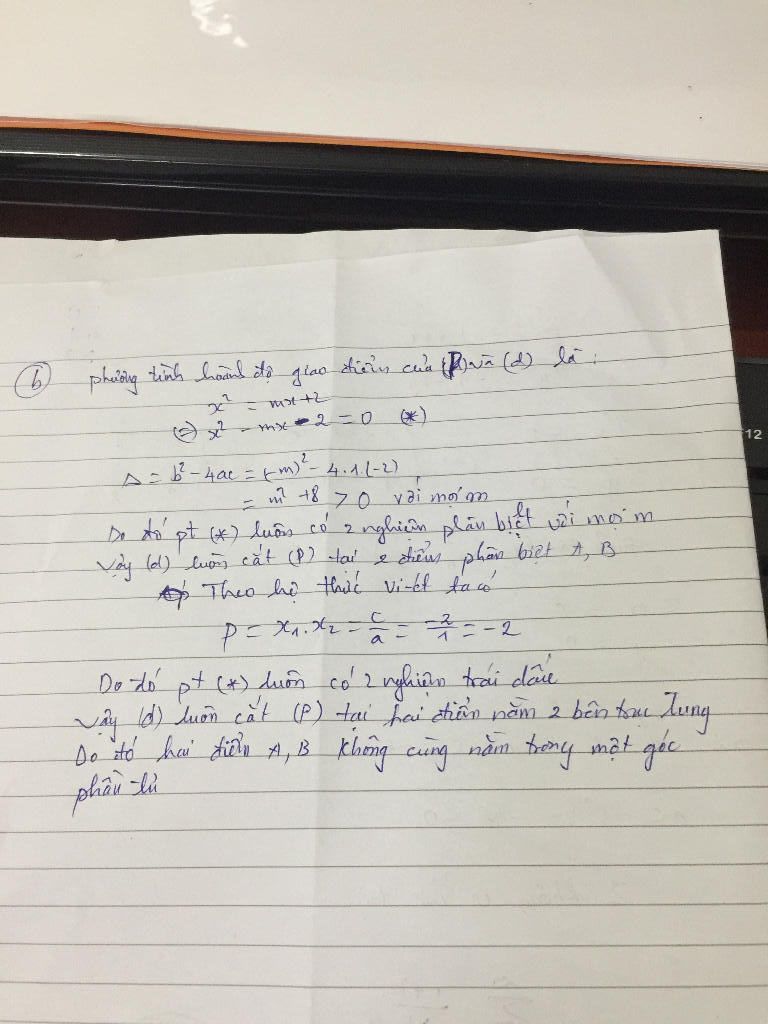 b phương trình hoành độ giao điểm của (P) và (d) là :
x² = mx+2
(=) x² - mx - 2 = 0 (*)
Δ = b² - 4ac = (-m)² - 4.1.(-2)
= m² + 8 > 0 với mọi m
Do đó pt (*) luôn có 2 nghiệm phân biệt với mọi m
Vậy (d) luôn cắt (P) tại 2 điểm phân biệt A, B
Theo hệ thức Vi-ét ta có
P = x₁.x₂ = c/a = -2/1 = -2
Do đó pt (*) luôn có 2 nghiệm trái dấu
Vậy (d) luôn cắt (P) tại hai điểm nằm 2 bên trục Tung
Do đó hai điểm A, B không cùng nằm trong một góc
phần tư
12